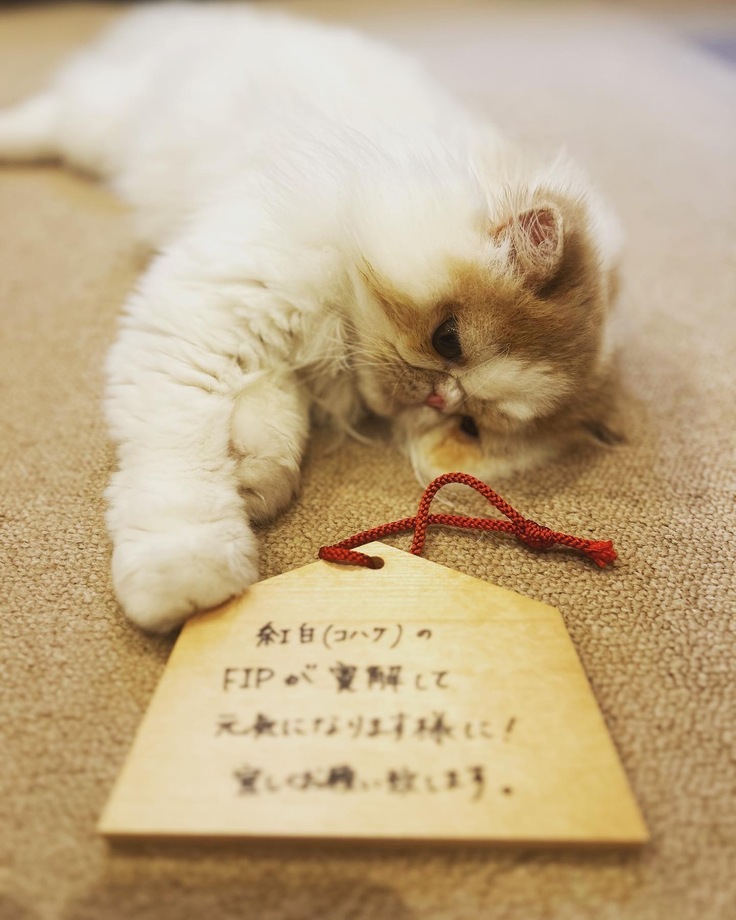 紅白(コハク)の
FIPが寛解して
元気になります様に!
宜しくお願い致します。